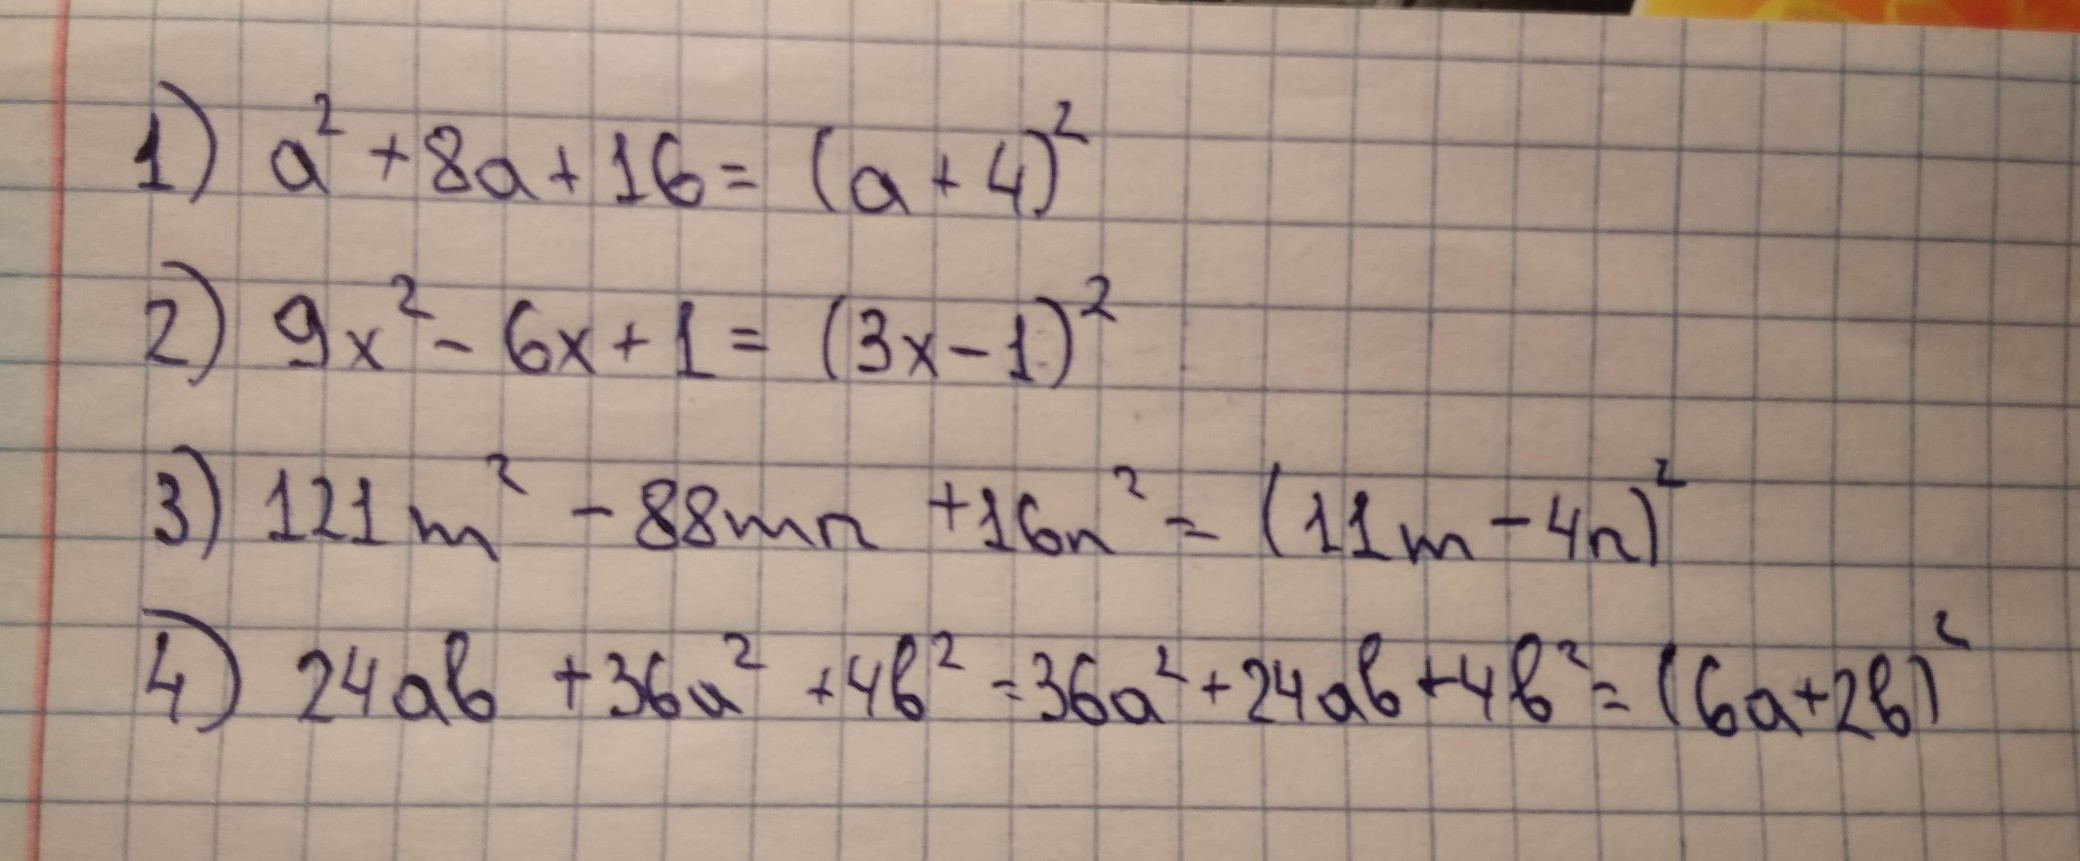 1) a² + 8a + 16 = (a + 4)²
2) 9x² - 6x + 1 = (3x - 1)²
3) 121m² - 88mn + 16n² = (11m - 4n)²
4) 24ab + 36a² + 4b² = 36a² + 24ab + 4b² = (6a + 2b)²